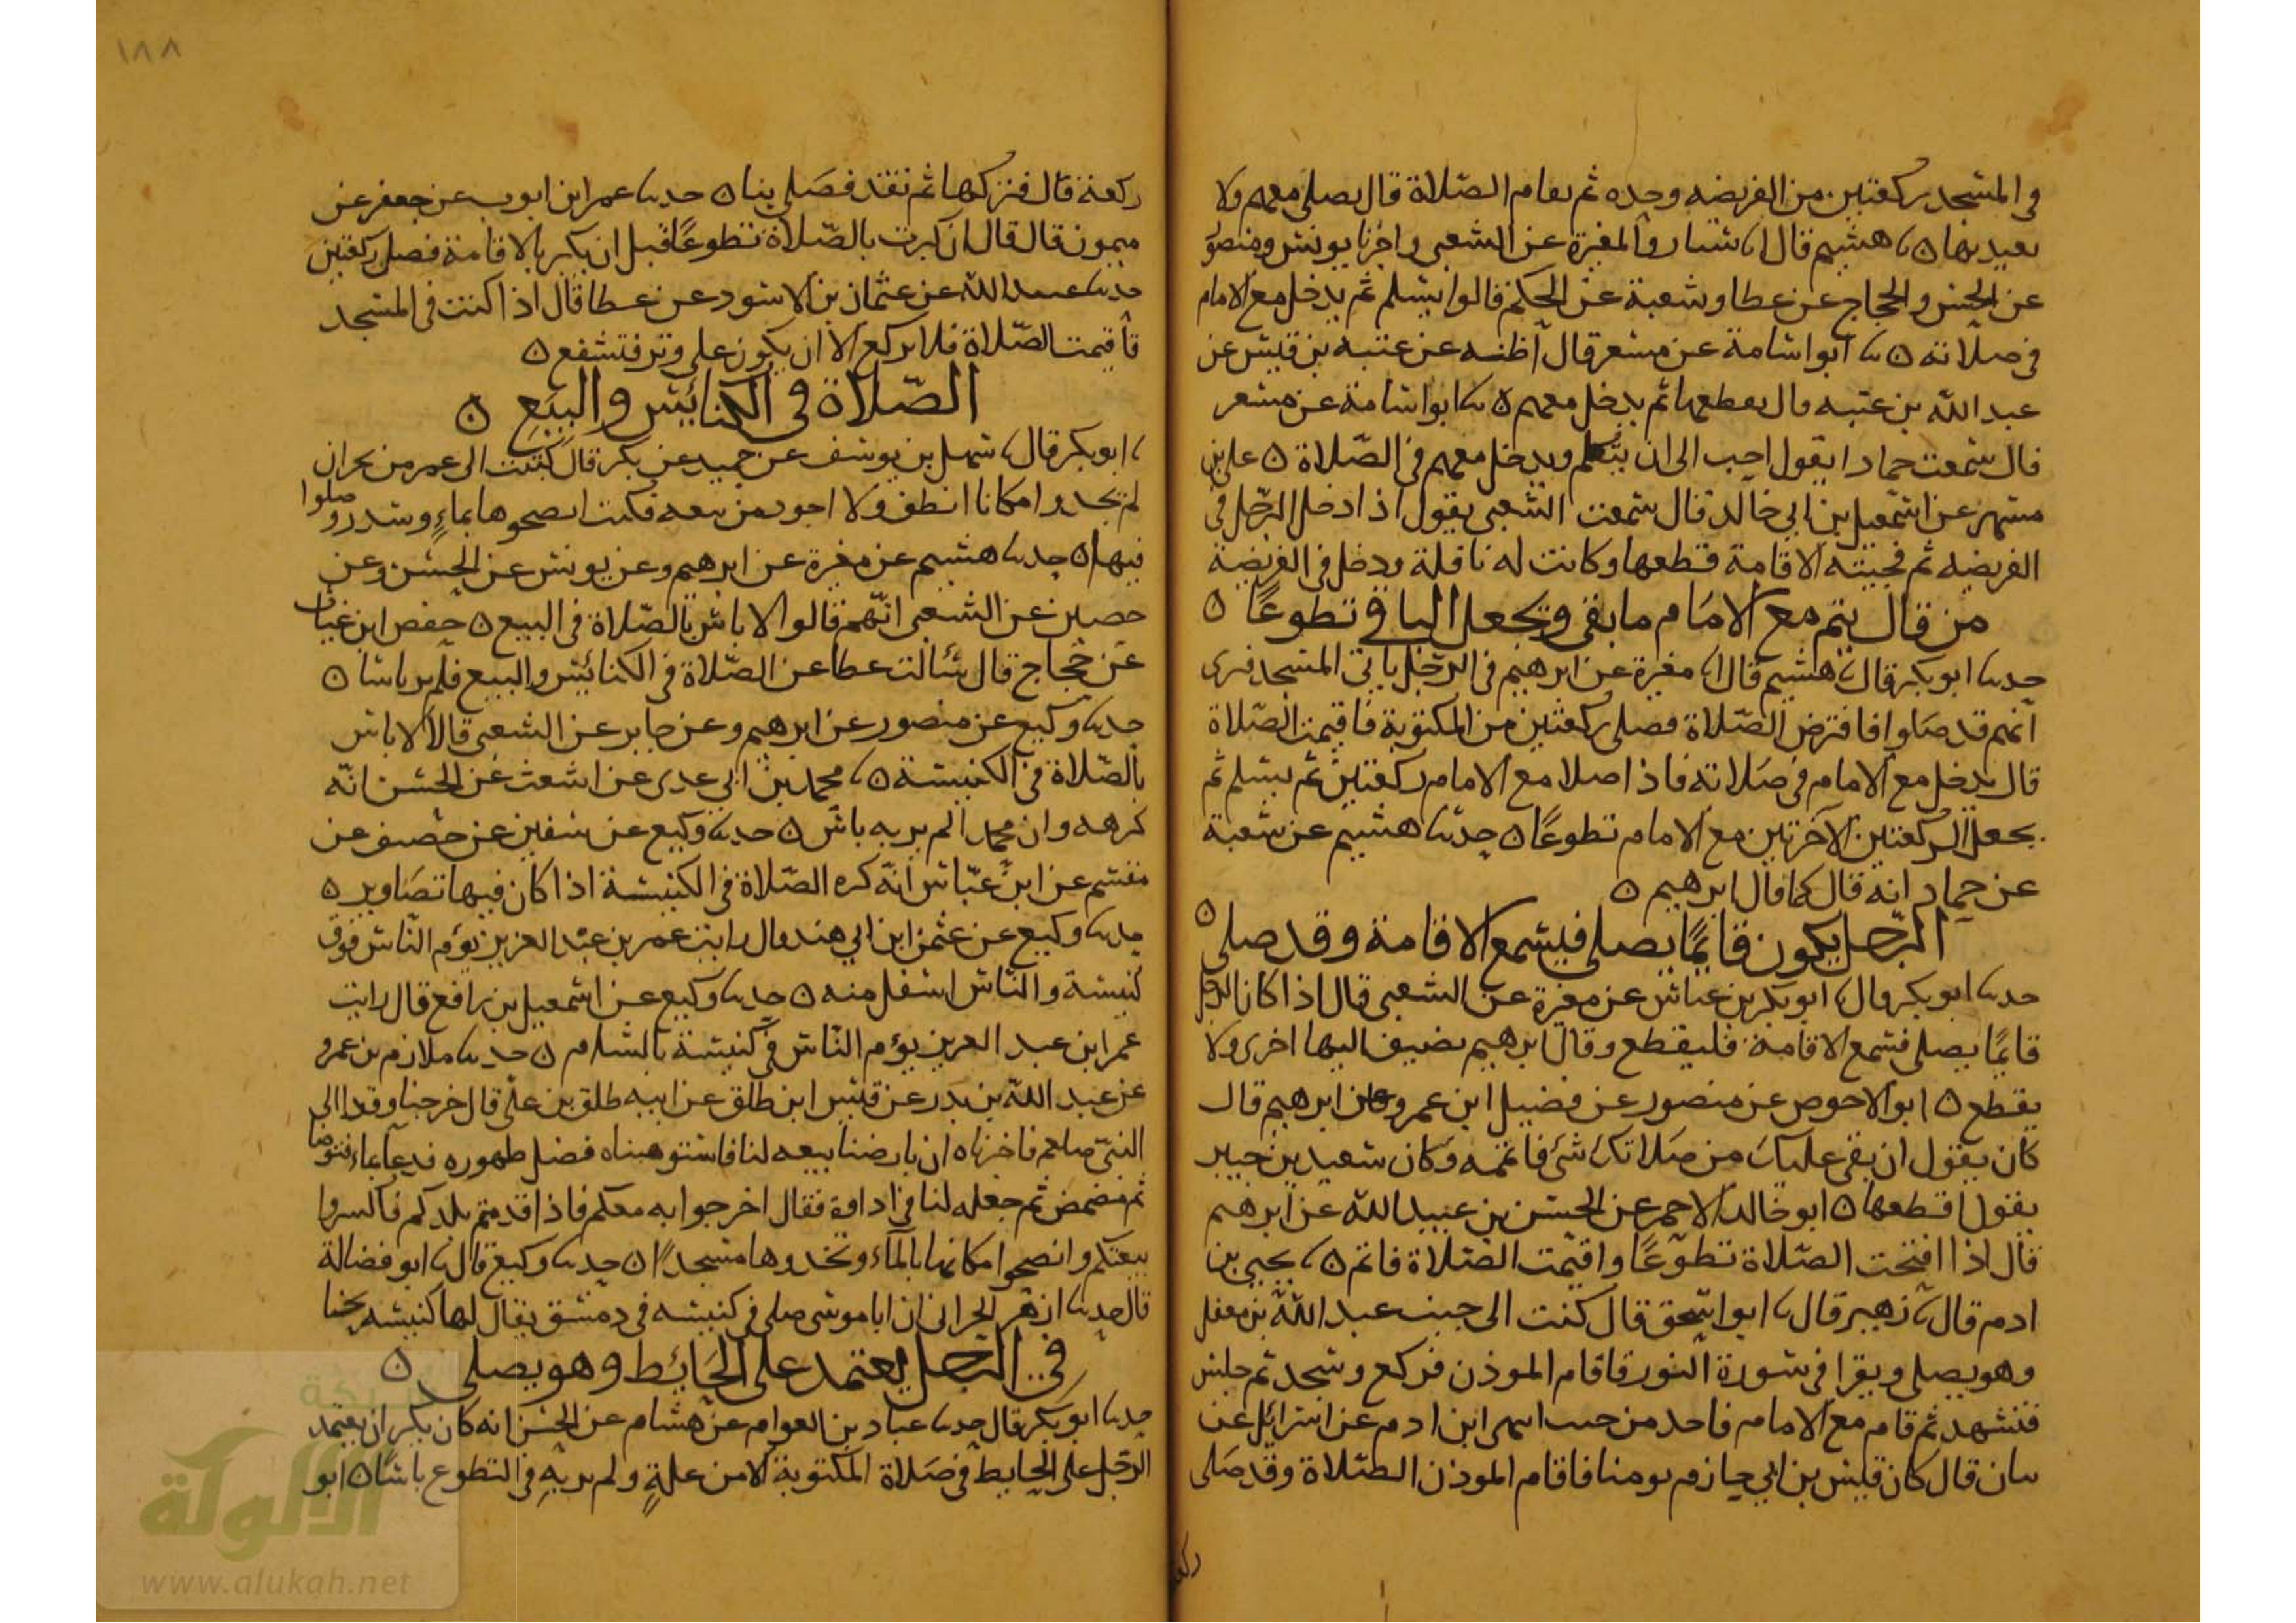 في المسجد ركعتين من الفريضه وحده ثم تقام الصلاة قال يصلي معهم ولا
يعيد بها ه هشيم قال سيار والمغيرة عن الشعبي واخبرنا يونس ومنصور
عن الحسن والحجاج عن عطا وشعبة عن الحكم قالوا يسلم ثم يدخل مع الامام
في صلاته ه ابو اسامة عن مسعر قال اظنه عن عتبه بن قيس عن
عبد الله بن عتبه قال يقطعها ثم يدخل معهم ه ابو اسامة عن مسعر
قال سمعت حمادا يقول احب الى ان يتكلم ويدخل معهم في الصلاة ه على بن
مسهر عن اسمعيل بن ابي خالد قال سمعت الشعبي يقول اذا دخل الرجل في
الفريضه ثم فجيته الاقامة قطعها وكانت له نافلة ودخل في الفريضة
من قال يتم مع الامام ما بقي ويجعل الباقي تطوعا ه
حدثنا ابو بكر قال هشيم قال مغيرة عن ابرهيم في الرجل ياتي المسجد فيرى
انهم قد صلوا فافترض الصلاة فصلى ركعتين من المكتوبة فاقيمت الصلاة
قال يدخل مع الامام في صلاته فاذا صلا مع الامام ركعتين ثم يسلم ثم
يجعل الركعتين الآخرتين مع الامام تطوعا ه حدثنا هشيم عن شعبة
عن حماد انه قال كما قال ابرهيم ه
الرجل يكون قائما يصلي فيسمع الاقامة وقد صلى ه
حدثنا ابو بكر قال ابو بكر بن عياش عن مغيرة عن الشعبي قال اذا كان الرجل
قائما يصلي فسمع الاقامة فليقطع وقال ابرهيم يضيف اليها اخرى ولا
يقطع ه ابو الاحوص عن منصور عن فضيل ابن عمرو عن ابرهيم قال
كان يقول ان بقى عليك من صلاتك شئ فاتمه وكان سعيد بن جبير
يقول اقطعها ه ابو خالد الاحمر عن الحسن بن عبيد الله عن ابرهيم
قال اذا افتتحت الصلاة تطوعا واقيمت الصلاة فاتم ه يحيى بن
ادم قال زهير قال ابو اسحق قال كنت الى جنب عبد الله بن معقل
وهو يصلي ويقرا في سورة النور فاقام الموذن فركع وسجد ثم جلس
فتشهد ثم قام مع الامام فاخذ من حيث انتهى ابن ادم عن اسرائل عن
بيان قال كان قيس بن ابي حازم يومنا فاقام الموذن الصلاة وقد صلى
ركعة
١٨٨
ركعة قال فتركها ثم تقدم فصلى بنا ه حدثنا عمر ابن ايوب عن جعفر عن
ميمون قال قال ان كبرت بالصلاة تطوعا قبل ان يكبر بالاقامة فصل ركعتين
حدثنا عبيد الله عن عثمان بن الاسود عن عطا قال اذا كنت في المسجد
فأقيمت الصلاة فلا تركع الا ان يكون على وتر فتشفع ه
الصلاة في الكنائس والبيع ه
ابو بكر قال سهل بن يوسف عن حميد عن بكر قال كتبت الى عمر من نجران
لم يجدوا مكانا انظف ولا اجود من بيعه فكتب انضحوها بماء وسدر وصلوا
فيها ه حدثنا هشيم عن مغيرة عن ابرهيم وعن يونس عن الحسن وعن
حصين عن الشعبي انهم قالوا لا باس بالصلاة في البيع ه حفص ابن غياث
عن حجاج قال سألت عطا عن الصلاة في الكنائس والبيع فلم ير باسا ه
حدثنا وكيع عن منصور عن ابرهيم وعن جابر عن الشعبي قالا لا باس
بالصلاة في الكنيسة ه محمد بن ابي عدى عن اشعث عن الحسن انه
كرهه وان محمدا لم ير به باس ه حدثنا وكيع عن سفين عن خصيف عن
مقسم عن ابن عباس انه كره الصلاة في الكنيسة اذا كان فيها تصاوير ه
حدثنا وكيع عن عثمن ابن ابي هند قال رايت عمر بن عبد العزيز يؤم الناس فوق
كنيسة والناس اسفل منه ه حدثنا وكيع عن اسمعيل بن رافع قال رايت
عمر ابن عبد العزيز يؤم الناس في كنيسة بالشام ه حدثنا ملازم بن عمرو
عن عبد الله بن بدر عن قيس ابن طلق عن ابيه طلق بن علي قال خرجنا وفدا الى
النبي صلعم فاخبرناه ان بارضنا بيعه لنا فاستوهبناه فضل طهوره فدعا بماء فتوضا
ثم مضمض ثم جعله لنا في اداوة فقال اخرجوا به معكم فاذا قدمتم بلدكم فاكسروا
بيعتكم وانضحوا مكانها بالماء وتخذوها مسجدا ه حدثنا وكيع قال ابو فضالة
قال حدثنا ازهر الحراني ان ابا موسى صلى في كنيسه في دمشق يقال لها كنيسه يحنا
في الرجل يعتمد على الحائط وهو يصلي ه
حدثنا ابو بكر قال حدثنا عباد بن العوام عن هشام عن الحسن انه كان يكره ان يعتمد
الرجل على الحايط في صلاة المكتوبة الا من علة ولم ير به في التطوع باسا ه ابو
شبكة
الألوكة
www.alukah.net